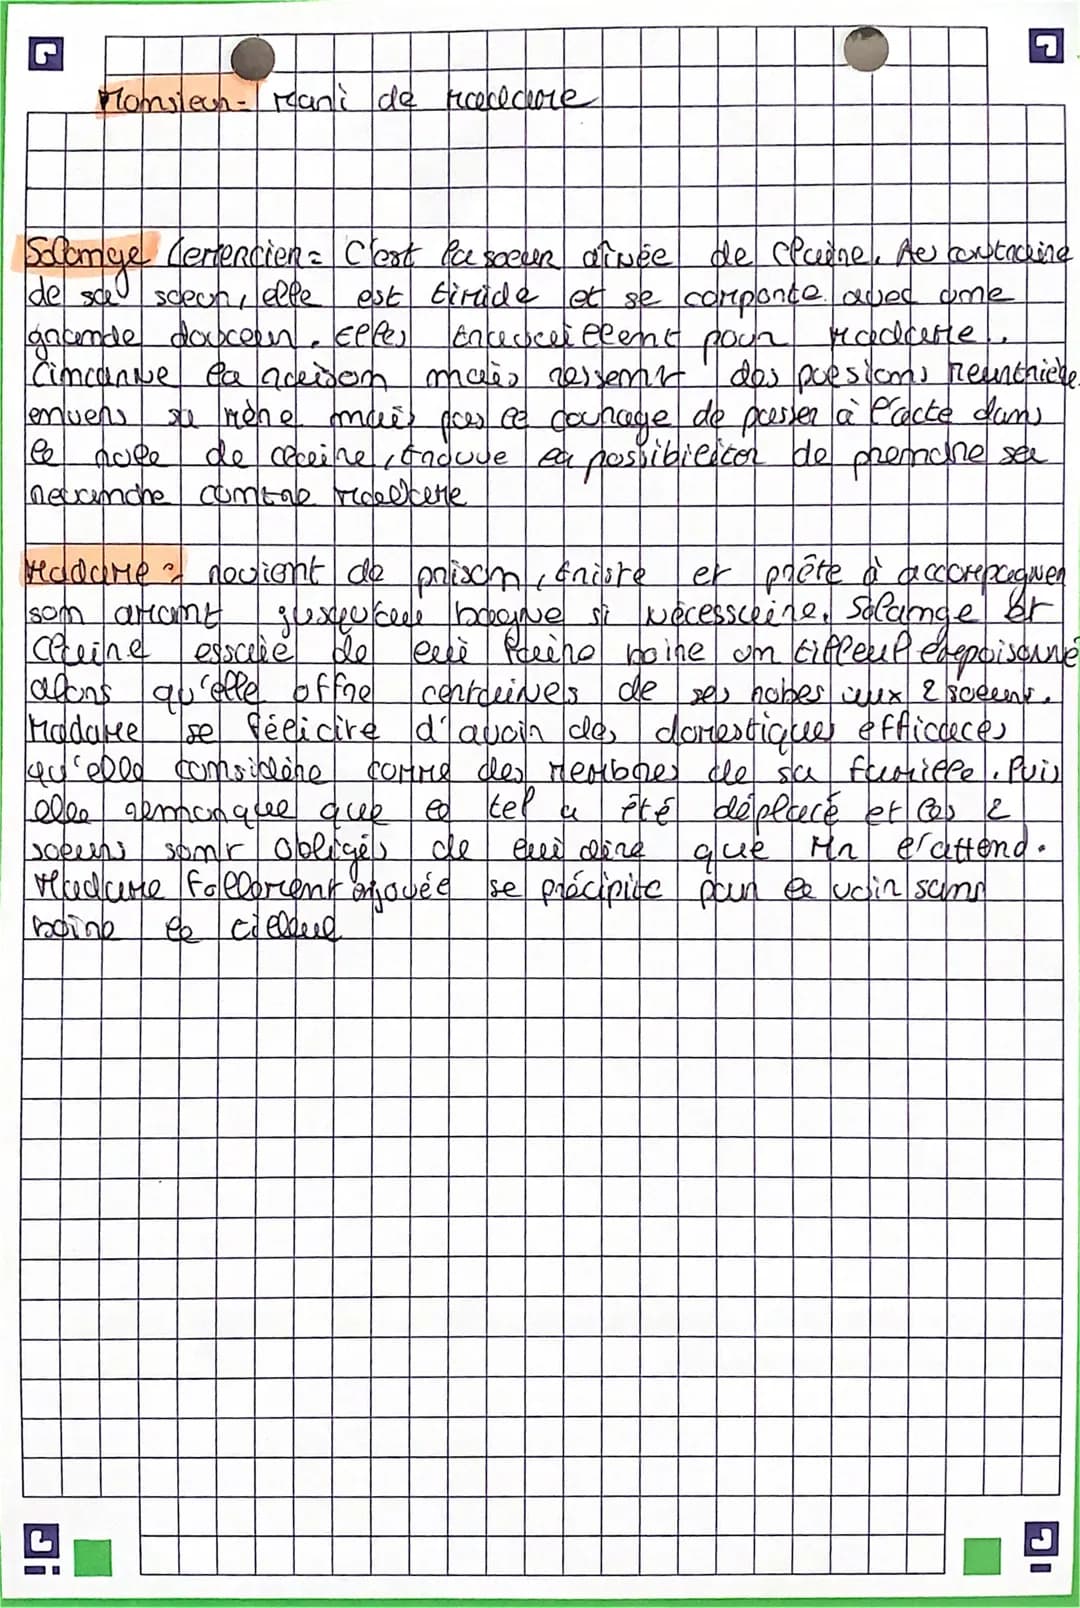 Monsieur = Mari de Madame
Solange Lemercier = C'est la soeur ainée de Claire. Au contraire
de sa soeur, elle est timide et se comporte avec une
grande douceur. Elles travaillent pour Madame.
L'incarne la raison mais ressent des pulsions meurtrière
envers sa mère mais pas le courage de passer à l'acte dans
le role de Claire, trouve la possibilité de prendre sa
revanche contre Madame
Madame = revient de prison, triste et prête à accompagner
son amant jusqu'au bagne si nécessaire. Solange et
Claire essaie de lui faire boire un tilleul empoisonné
alors qu'elle offre certaines de ses robes aux 2 soeurs.
Madame se félicite d'avoir des domestiques efficaces
qu'elle considère comme des membres de sa famille. Puis
elle remarque que le tel a été déplacé et les 2
soeurs sont obligés de lui dire que Mr l'attend.
Madame follement enjouée se précipite pour le voir sans
boire le tilleul